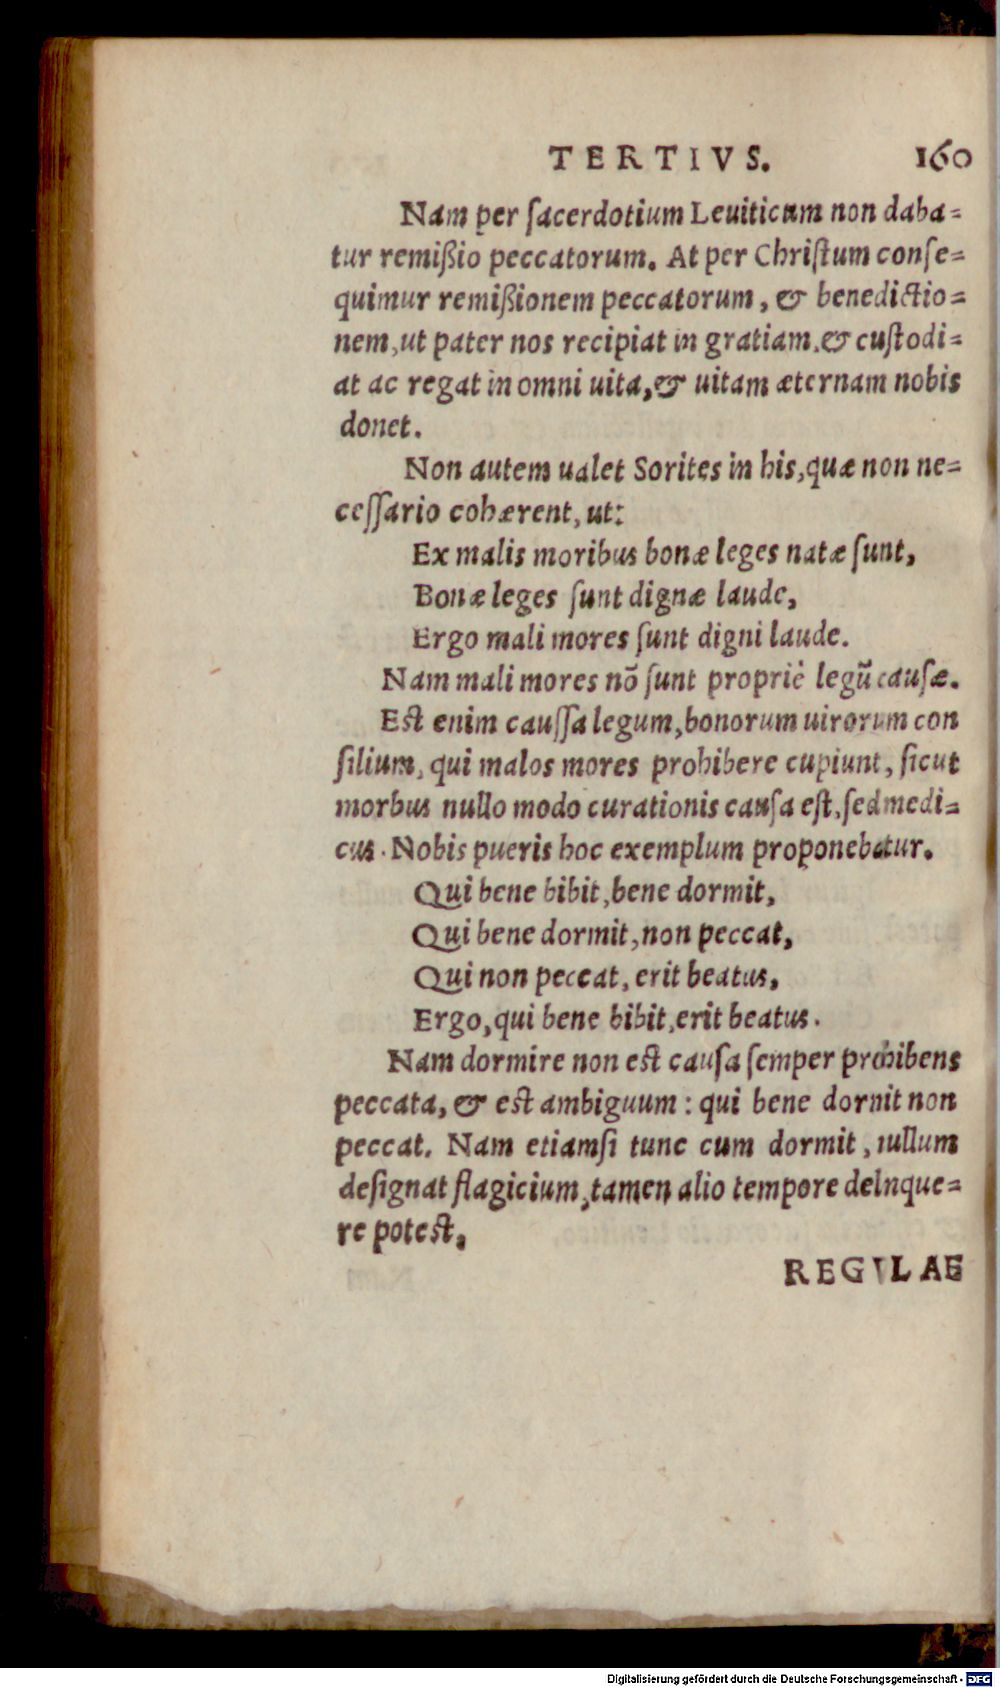 TERTIVS. 160
Nam per ſacerdotium Leuiticum non daba=
tur remißio peccatorum. At per Chriſtum conſe=
quimur remißionem peccatorum, & benedictio=
nem, ut pater nos recipiat in gratiam, & cuſtodi=
at ac regat in omni uita, & uitam æternam nobis
donet.
Non autem ualet Sorites in his, quæ non ne=
ceſſario cohærent, ut:
Ex malis moribus bonæ leges natæ ſunt,
Bonæ leges ſunt dignæ laude,
Ergo mali mores ſunt digni laude.
Nam mali mores nõ ſunt propriè legũ cauſæ.
Eſt enim cauſſa legum, bonorum uirorum con
ſilium, qui malos mores prohibere cupiunt, ſicut
morbus nullo modo curationis cauſa eſt, ſed medi=
cus. Nobis pueris hoc exemplum proponebatur.
Qui bene bibit, bene dormit,
Qui bene dormit, non peccat,
Qui non peccat, erit beatus,
Ergo, qui bene bibit, erit beatus.
Nam dormire non eſt cauſa ſemper prohibens
peccata, & eſt ambiguum: qui bene dormit non
peccat. Nam etiamſi tunc cum dormit, nullum
deſignat flagicium, tamen alio tempore delinque=
re poteſt,
REGVLAE
Digitalisierung gefördert durch die Deutsche Forschungsgemeinschaft - DFG